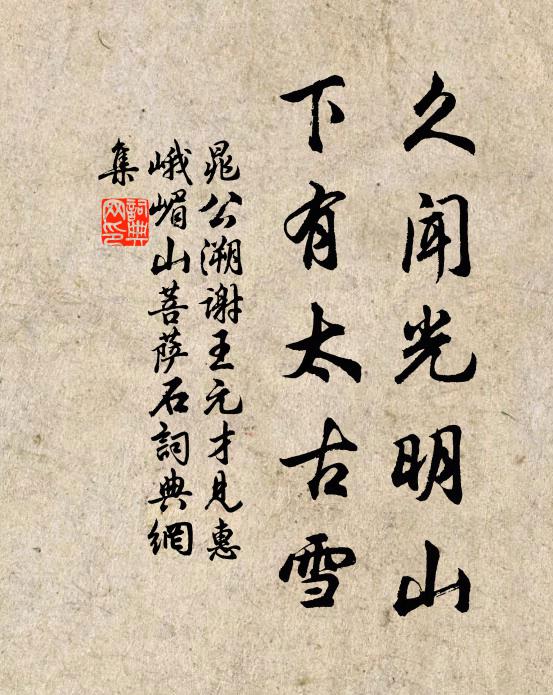 久闻光明山
下有太古雪
晁公溯谢王元才见惠
峨嵋山菩萨石詞典網
集
詞典網印